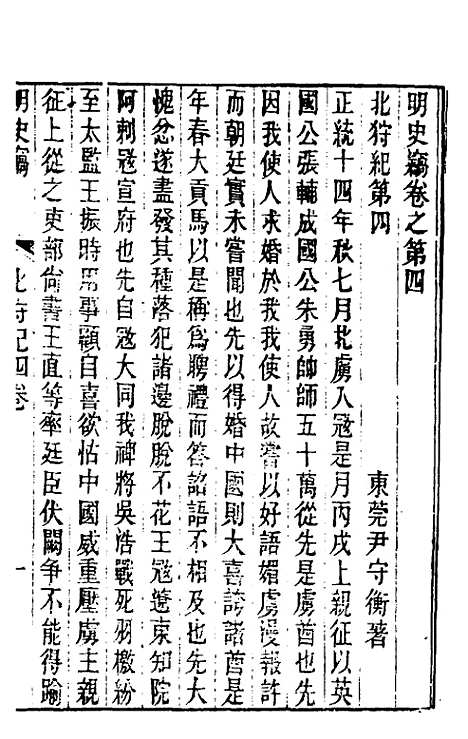 明史竊卷之第四
北狩紀第四
東莞尹守衡著
正統十四年秋七月北虜入寇是月丙戌上親征以英
國公張輔成國公朱勇帥師五十萬從先是虜酋也先
因我使人求婚於我我使人故嘗以好語媚虜漫報許
而朝廷實未嘗聞也先以得婚中國則大喜誇諸酋是
年春大貢馬以是稱爲聘禮而答詔語不相及也先大
愧忿遂盡發其種落犯諸邊脫脫不花王寇遼東知院
阿剌寇宣府也先自寇大同我裨將吳浩戰死羽檄紛
至太監王振時用事顧自喜欲怙中國威重壓虜主親
征上從之吏部尙書王直等率廷臣伏闕争不能得踰
明史竊
北狩紀四卷
一